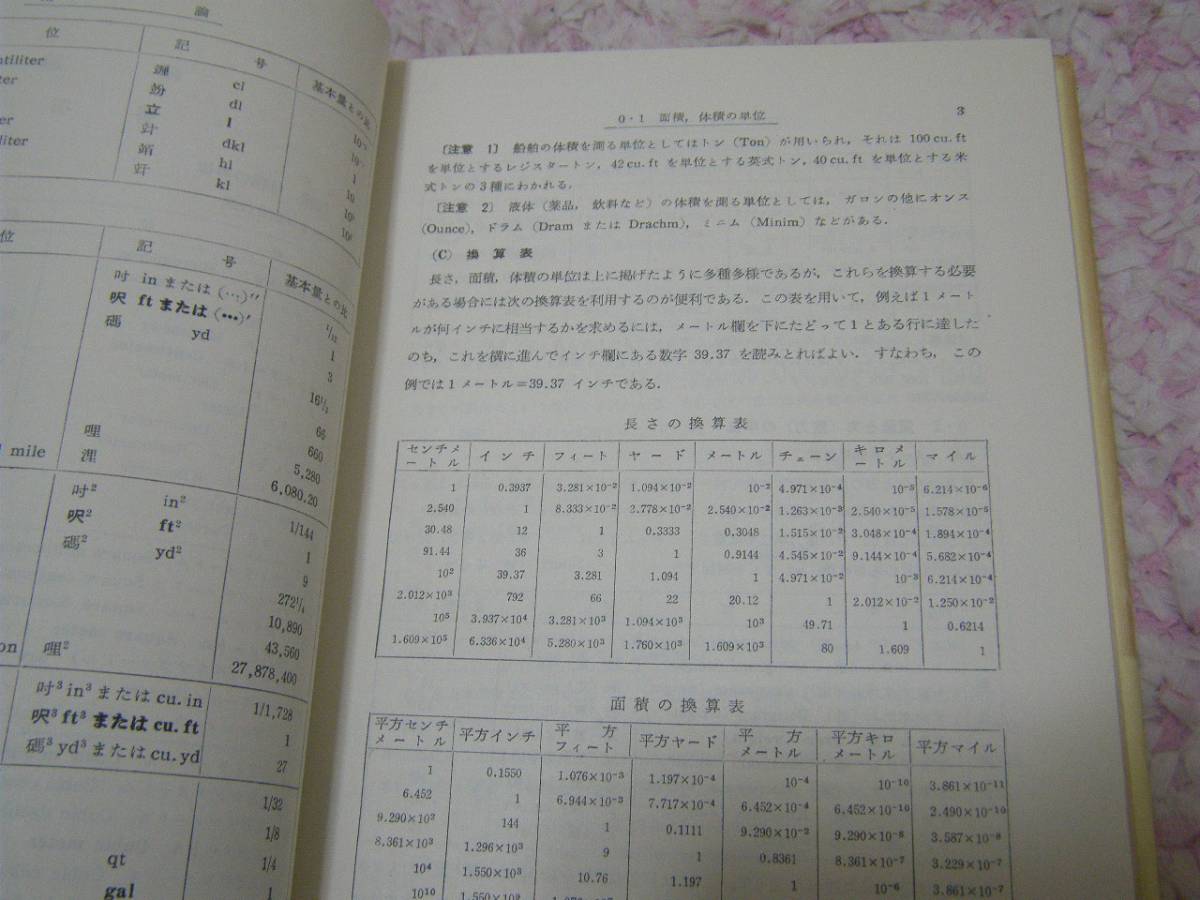 論
位 記 号 基本量との比
ntiliter 竰 cl
竕 dl
立 l 1
計 dkl 10
竡 hl
竏 kl
位 記 号 基本量との比
吋 inまたは(…)″ 1/12
呎 ftまたは(…)′ 1
碼 yd 3
16½
66
660
哩 5,280
mile 浬 6,080.20
吋² in² 1/144
呎² ft² 1
碼² yd² 9
272¼
10,890
43,560
哩² 27,878,400
吋³ in³ または cu.in 1/1,728
呎³ ft³ または cu.ft 1
碼³ yd³ または cu.yd 27
1/32
1/8
qt 1/4
gal 1
0・1 面積,体積の単位 3
〔注意 1〕 船舶の体積を測る単位としてはトン (Ton) が用いられ,それは 100 cu. ft
を単位とするレジスタートン,42 cu. ft を単位とする英式トン,40 cu. ft を単位とする米
式トンの3種にわかれる.
〔注意 2〕 液体 (薬品,飲料など) の体積を測る単位としては,ガロンの他にオンス
(Ounce), ドラム (Dram または Drachm), ミニム (Minim) などがある.
(C) 換算表
長さ,面積,体積の単位は上に掲げたように多種多様であるが,これらを換算する必要
がある場合には次の換算表を利用するのが便利である.この表を用いて,例えば1メート
ルが何インチに相当するかを求めるには,メートル欄を下にたどって1とある行に達した
のち,これを横に進んでインチ欄にある数字 39.37 を読みとればよい.すなわち,この
例では1メートル=39.37 インチである.
長さの換算表
センチメートル インチ フィート ヤード メートル チェーン キロメートル マイル
1 0.3937 3.281×10⁻² 1.094×10⁻² 10⁻² 4.971×10⁻⁴ 10⁻⁵ 6.214×10⁻⁶
2.540 1 8.333×10⁻² 2.778×10⁻² 2.540×10⁻² 1.263×10⁻³ 2.540×10⁻⁵ 1.578×10⁻⁵
30.48 12 1 0.3333 0.3048 1.515×10⁻² 3.048×10⁻⁴ 1.894×10⁻⁴
91.44 36 3 1 0.9144 4.545×10⁻² 9.144×10⁻⁴ 5.682×10⁻⁴
10² 39.37 3.281 1.094 1 4.971×10⁻² 10⁻³ 6.214×10⁻⁴
2.012×10³ 792 66 22 20.12 1 2.012×10⁻² 1.250×10⁻²
10⁵ 3.937×10⁴ 3.281×10³ 1.094×10³ 10³ 49.71 1 0.6214
1.609×10⁵ 6.336×10⁴ 5.280×10³ 1.760×10³ 1.609×10³ 80 1.609 1
面積の換算表
平方センチメートル 平方インチ 平方フィート 平方ヤード 平方メートル 平方キロメートル 平方マイル
1 0.1550 1.076×10⁻³ 1.197×10⁻⁴ 10⁻⁴ 10⁻¹⁰ 3.861×10⁻¹¹
6.452 1 6.944×10⁻³ 7.717×10⁻⁴ 6.452×10⁻⁴ 6.452×10⁻¹⁰ 2.490×10⁻¹⁰
9.290×10² 144 1 0.1111 9.290×10⁻² 9.290×10⁻⁸ 3.587×10⁻⁸
8.361×10³ 1.296×10³ 9 1 0.8361 8.361×10⁻⁷ 3.229×10⁻⁷
10⁴ 1.550×10³ 10.76 1.197 1 10⁻⁶ 3.861×10⁻⁷
10¹⁰